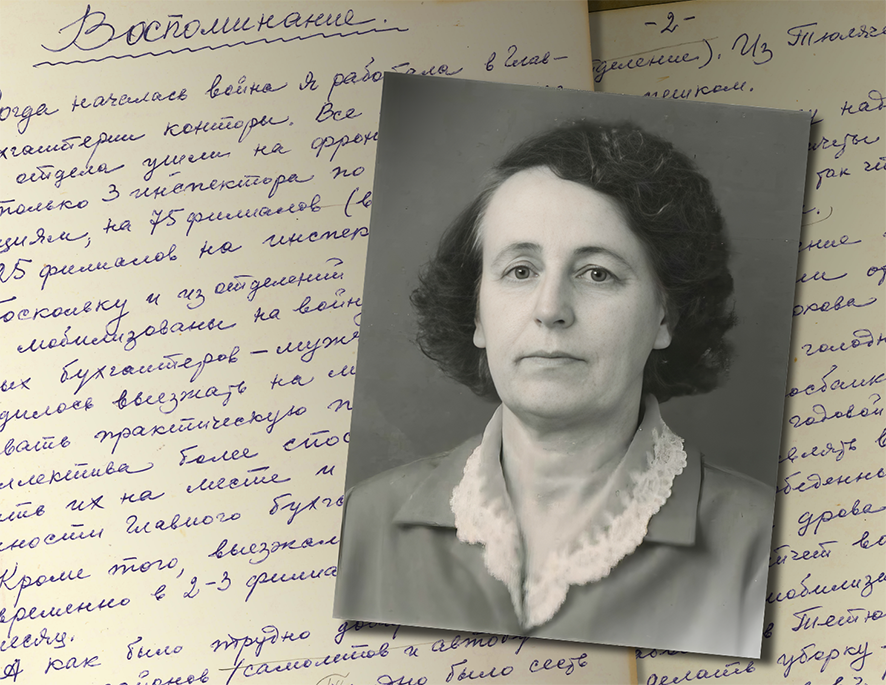 Воспоминание.
огда началась война я работала в Глав-
хгалтерии конторы. Все
отдела ушли на фрон
только 3 инспектора по
циям, на 75 филиалов (в
25 филиалов на инспек
Поскольку и из отделений
мобилизованы на войну
ых бухгалтеров – муж
дилось выезжать на м
вать практическую п
ллектива более спос
ить их на месте и
ности Главного бухг
Кроме того, выезжал
временно в 2-3 филиа
месяцу.
А как было трудно доб
районов (самолетов и автобу
но было сесть
-2-
деление). Из Тюляче
пешком.
над
так чт
ение
ли ор
кова
голодн
осбанк
годовой
влять в
беденно
дрова
чет во
мобилиза
в Тетю
делать уборку-